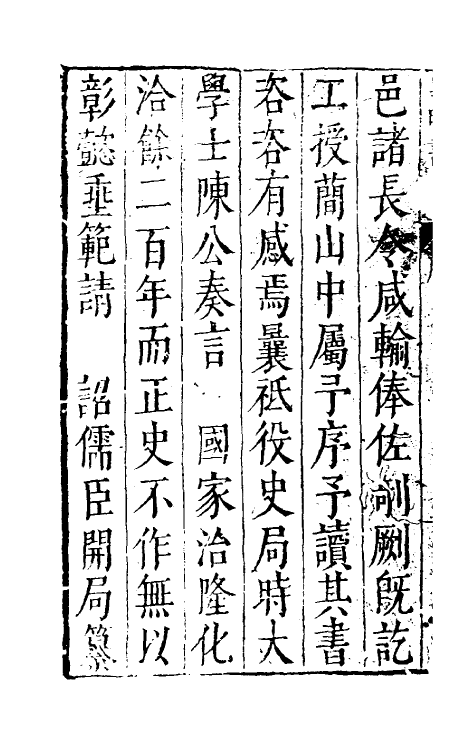 邑諸長令咸輸俸佐剞劂旣訖
工授蕳山中屬予序予讀其書
咨咨有感焉曩祗役史局時大
學士陳公奏言　國家治隆化
洽餘二百年而正史不作無以
彰懿埀範請　詔儒臣開局纂